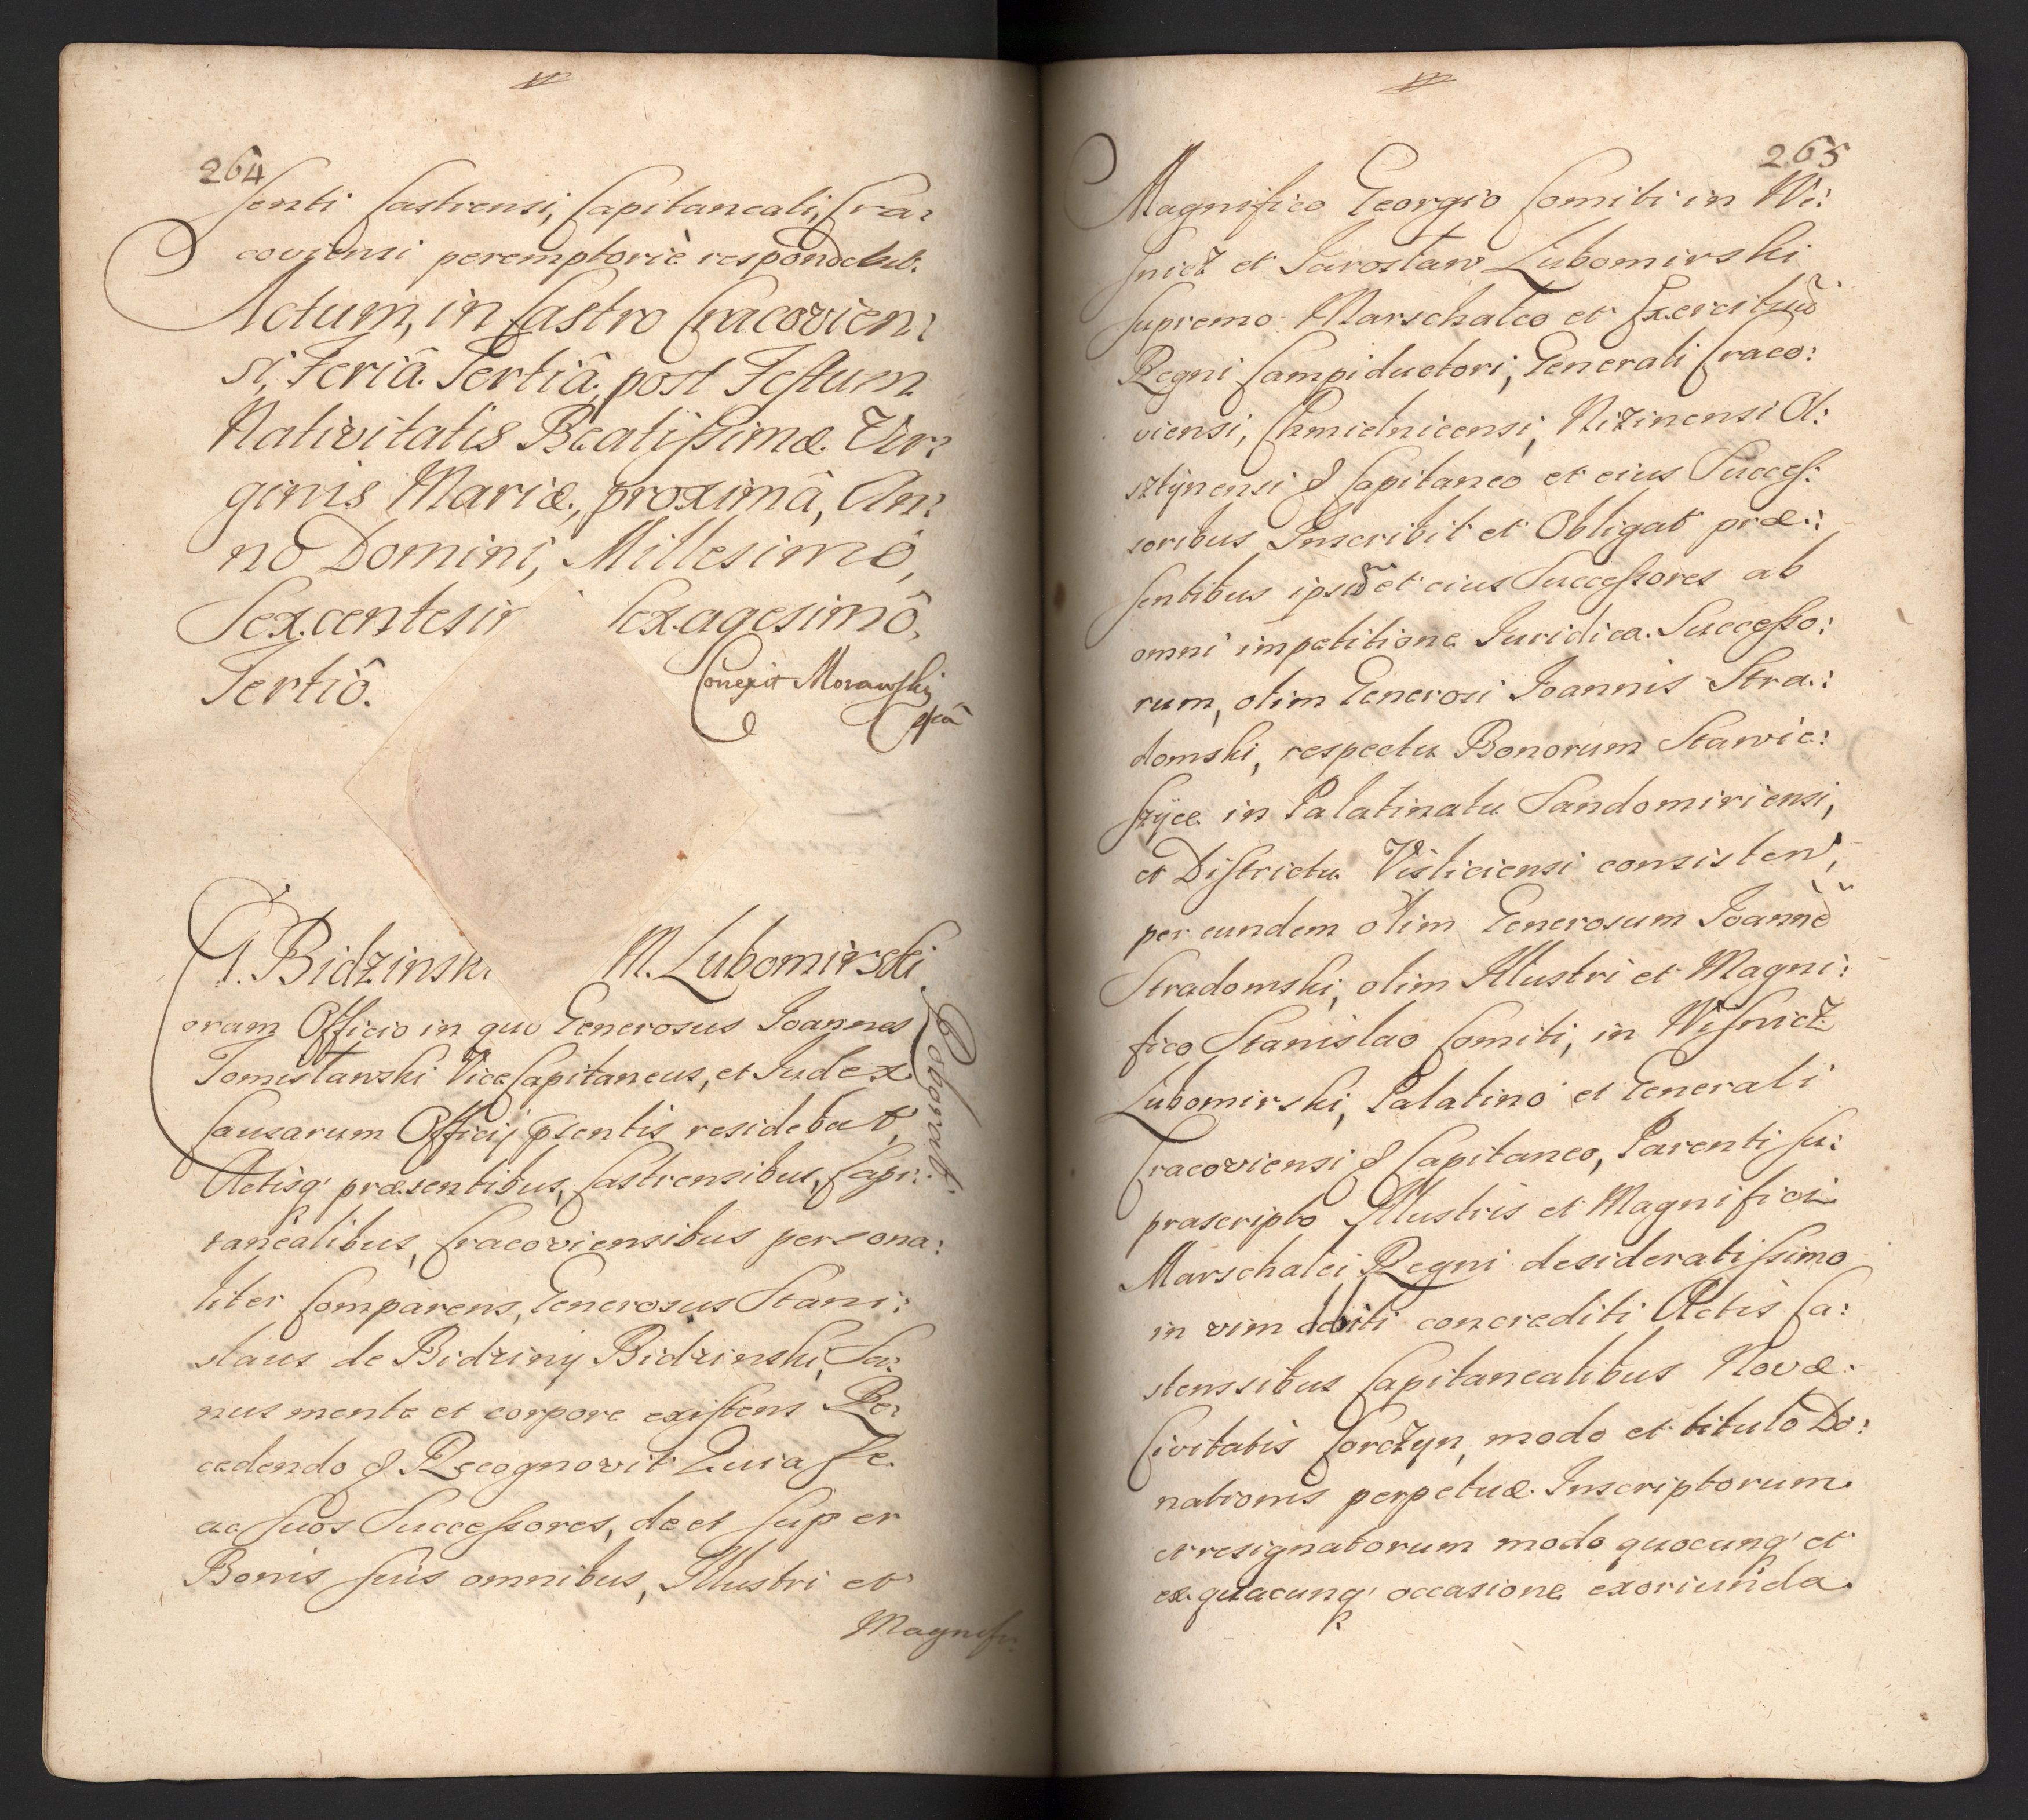 264
senti Castrensi, Capitaneali, Cra:
coviensi peremptoriè respondebit.
Actum, in Castro Cracovien:
si, Feriâ Tertiâ, post Festum
Nativitatis Beatissimæ Vir:
ginis Mariæ, proximâ, An:
nô Domini, Millesimô,
Sexcentesi Sexagesimô,
Tertiô.
Correxit Morawski
G. Bidzinski M. Lubomirski
oram Officio in quo Generosus Joannes
Tomisławski ViceCapitaneus, et Judex
Causarum Officij pñtis residebat,
Actisq' præsentibus, Castrensibus, Capi:
tanealibus, Cracoviensibus persona:
liter Comparens, Generosus Stani:
slaus de Bidziny Bidzinski, Sa:
nus mente et corpore existens Re:
cedendo & Recognovit Quia Se
ac suos Successores, de et super
Bonis suis omnibus, Illustri et
Magnifi:
Roborat.
265
Magnifico Georgio Comiti in Wi:
snicz et Jarosław Lubomirski
supremo Marschalco et Exercituũ
Regni Campiductori, Generali Craco:
viensi, Chmielnicensi, Nizinensi Ol:
sztynensi & Capitaneo et eius Succes:
soribus Inscribit et Obligat præ:
sentibus ipsũ et eius Successores ab
omni impetitione Juridica Successo:
rum, olim Generosi Joannis Stra:
domski, respectu Bonorum Stawie:
szyce in Palatinatu Sandomiriensi,
et Districtu Visliciensi consisten,
per eundem olim Generosum Joannẽ
Stradomski, olim Illustri et Magni:
fico Stanislao Comiti, in Wisnicz
Lubomirski, Palatino et Generali
Cracoviensi & Capitaneo, Parenti su:
prascripto Illustris et Magnifici
Marschalci Regni desideratissimo
in vim debiti concrediti Actis Ca:
stenssibus Capitanealibus Novæ
Civitatis Corczyn, modo et titulo Do:
nationis perpetuæ Inscriptorum
et resignatorum modo quocunq' et
ex quacunq' occasione exoriunda